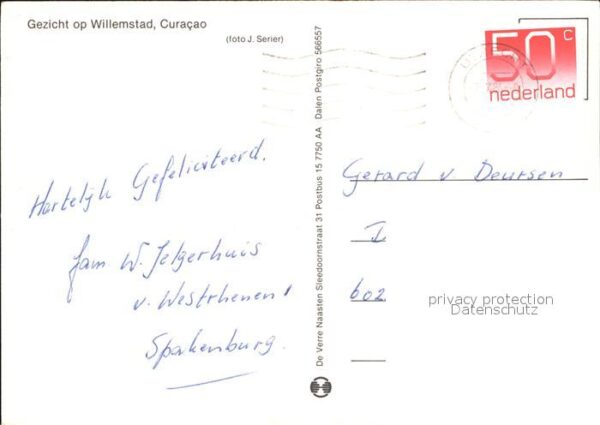 Gezicht op Willemstad, Curaçao
(foto J. Serier)
Hartelijk Gefeliciteerd.
fam W. Jelgerhuis
v. Westrhenen
Spakenburg.
De Verre Naasten Sleedoornstraat 31 Postbus 15 7750 AA Dalen Postgiro 566557
50 c
nederland
Gerard v Deursen
I
602
privacy protection
Datenschutz